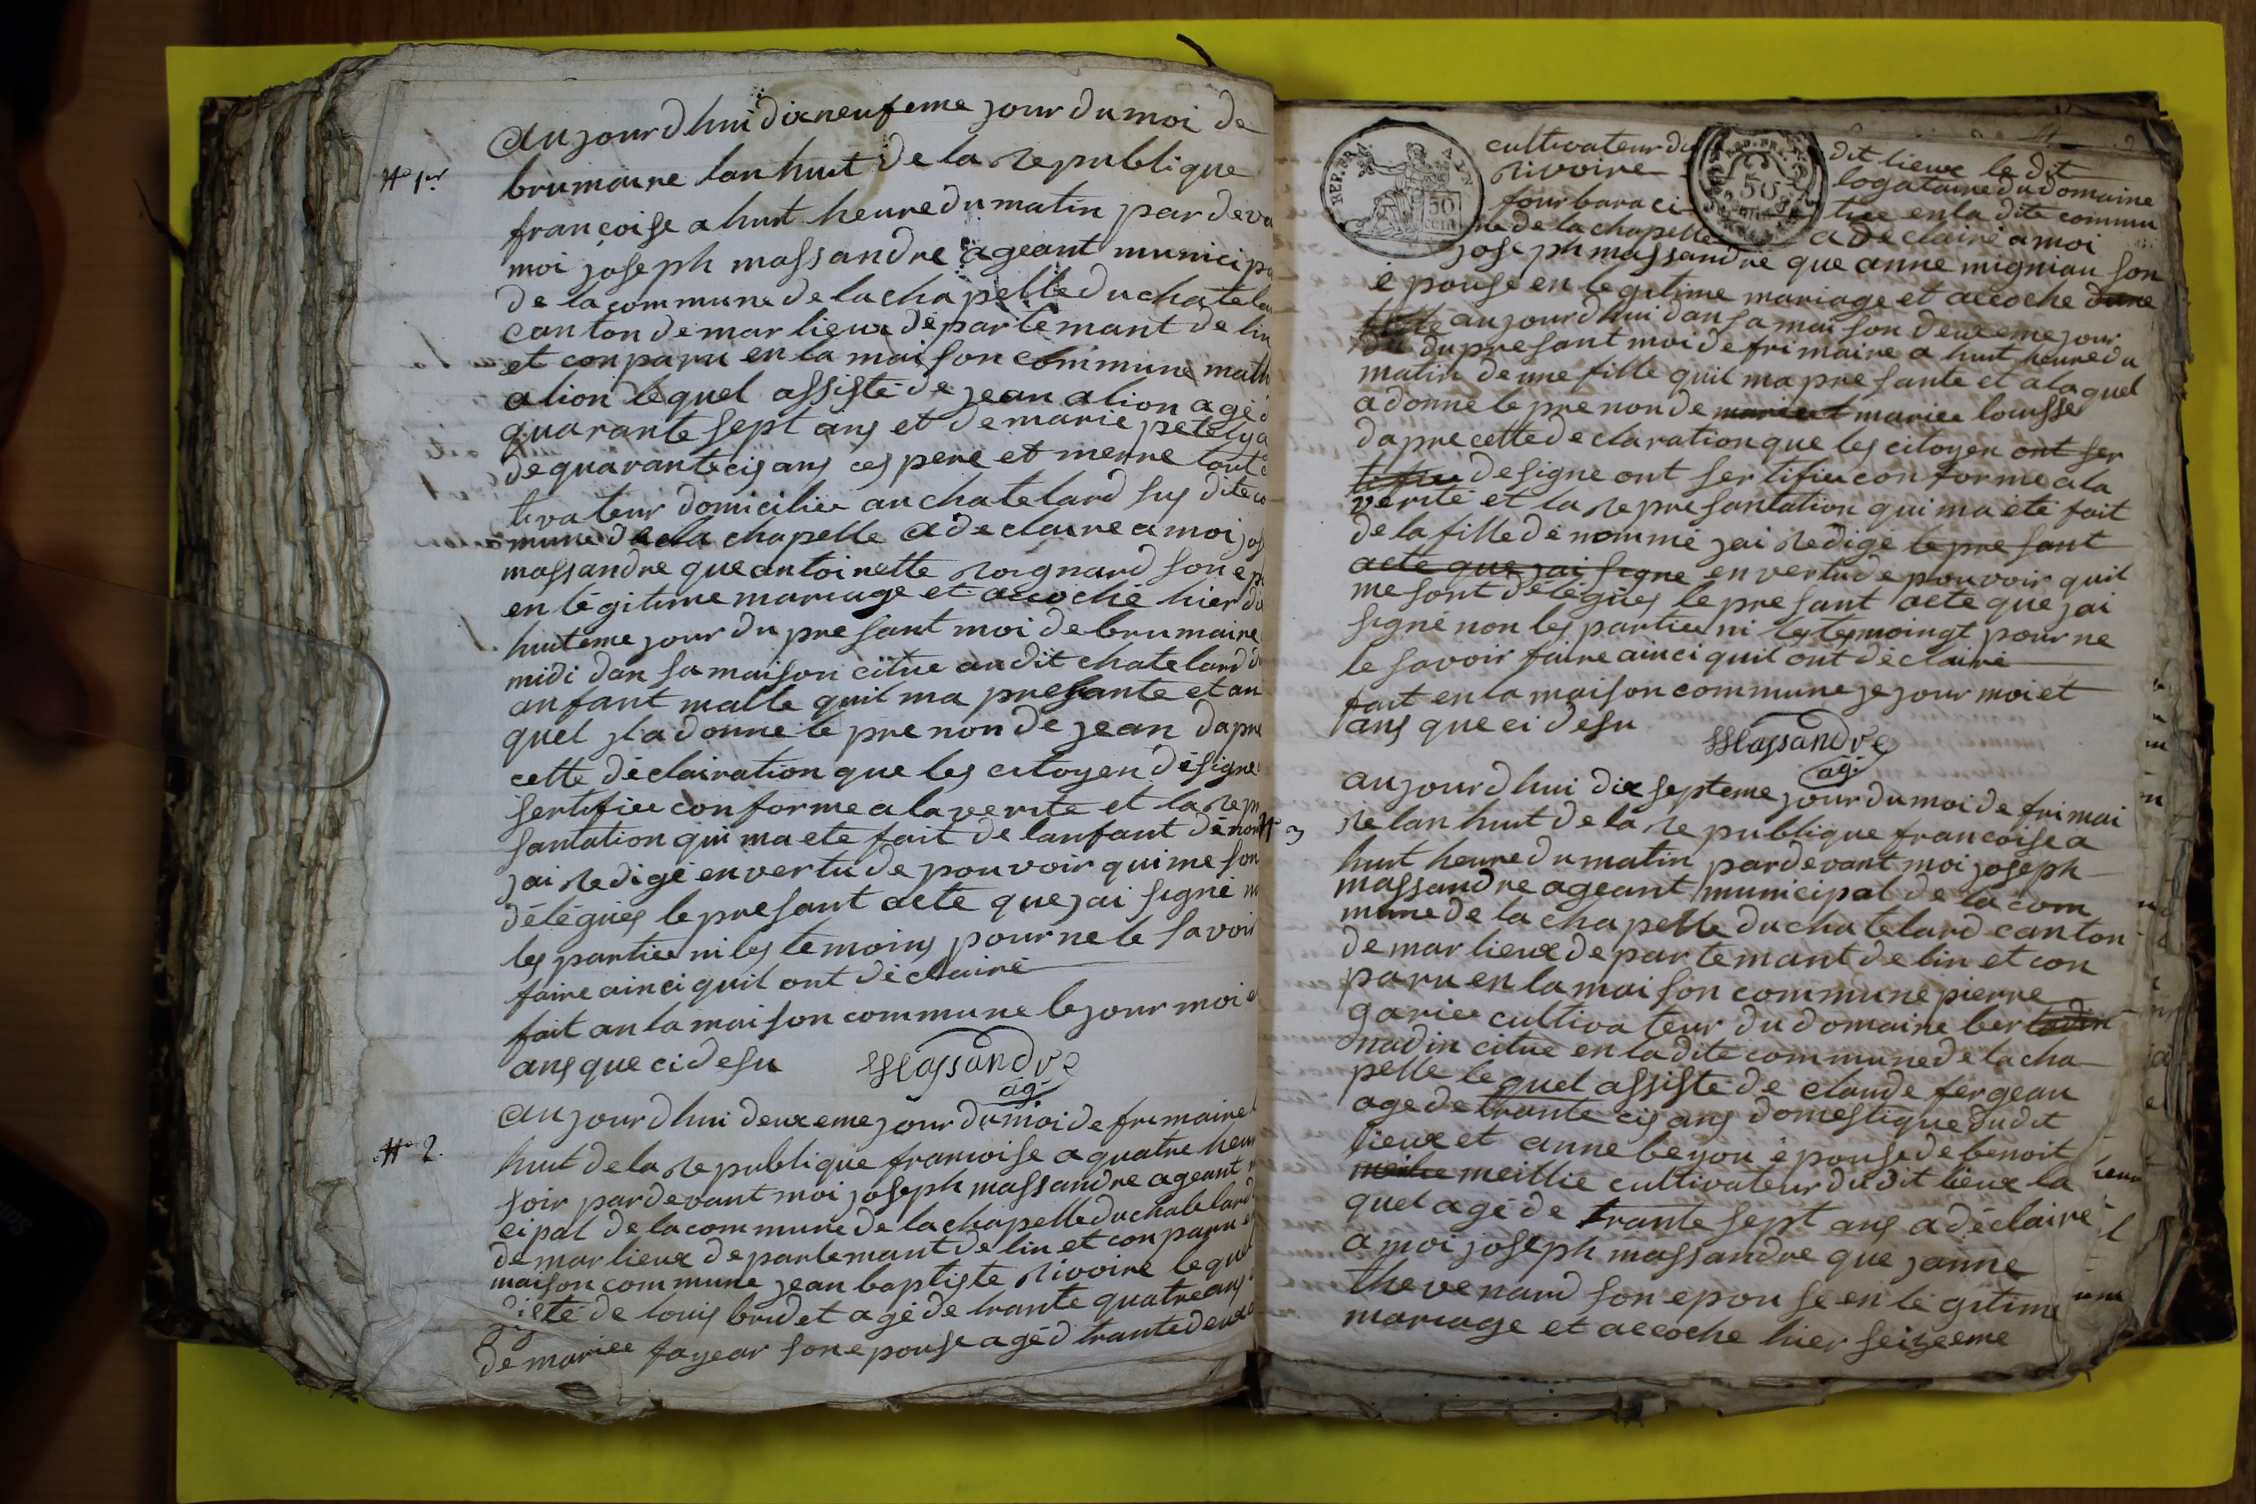 aujourdhui dixneufeme jour du moi de
N° 1er
brumaire lan huit de la republique
françoise a huit heure du matin par deva
moi joseph massandre ageant municipa
de la commune de la chapelle du chatela
canton de marlieux departemant de lin
et conparu en la maison commune math
alion lequel assisté de jean alion agé d
quarante sept ans et de marie petely a
de quarante cis ans ces pere et merre tout c
tivateur domiciliee au chatelard sus dite co
mune de la chapelle a declaire a moi jos
massandre que antoinette roignard son ep
en légitime mariage et accoché hier di
huiteme jour du presant moi de brumaire
midi dan sa maison citue au dit chatelard d
anfant malle quil ma presante et au
quel jl a donne le prenon de jean dapre
cette déclairation que les citoyen désigne
sertifiee conforme a la verite et la repr
santation qui ma ete fait de lanfant dénom
jai redigé en vertu de pouvoir qui me son
délégués le presant acte que jai signé no
les partiee ni les temoins pour ne le savoir
faire ainci quil ont déclairé
fait an la maison commune le jour moi e
ans que ci desu
Massandre
ag.
aujourdhui deuxeme jour du moi de frimaire l
N° 2.
huit de la republique francoise a quatre heur
soir pardevant moi joseph massandre ageant m
cipal de la commune de la chapelle du chatelard
de marlieux departemant de lin et conparu e
maison commune jean baptiste rivoire lequel
sisté de louis bridet agé de trante quatre ans
de mariee fayear son epouse agé d trante deux a
cultivateur du dit lieux le dit
rivoire logataire du domaine
four baraci tue en la dite commu
ne de la chapelle a déclairé a moi
joseph massandre que anne migniau son
épouse en legitime mariage et accoche dune
fille aujourdhui dan sa maison deuxeme jour
du du presant moi de frimaire a huit heure du
matin de une fille quil ma presante et a laquel
a donne le prenon de mariee mariee lousse
dapre cette declaration que les citoyen ont ser
tifiee designe ont sertifiee conforme a la
verité et la represantation qui ma été fait
de la fille dénommé jai redigé le presant
acte que jai signe en vertu de pouvoir quil
me sont délégués le presant acte que jai
signé non les partiee ni les temoingt pour ne
le savoir faire ainci quil ont déclairé
fait en la maison commune je jour moi et
ans que ci desu
Massandre
ag.
aujourdhui dix septeme jour du moi de frimai
N° 3
re lan huit de la republique francoise a
huit heure du matin pardevant moi joseph
massandre ageant municipal de la com
mune de la chapelle du chatelard canton
de marlieux departemant de lin et con
paru en la maison commune pierre
gariee cultivateur du domaine ber
nadin citue en la dite commune de la cha
pelle lequel assisté de claude fergeau
age de trante cis ans domestique du dit
lieux et anne beyon épouse de benoit
meillie cultivateur du dit lieux la
quel agé de trante sept ans a déclaire
a moi joseph massandre que janne
thevenard son epouse en légitime
mariage et accoche hier seizeeme
REP. FRA.
AIN
50
cent
50